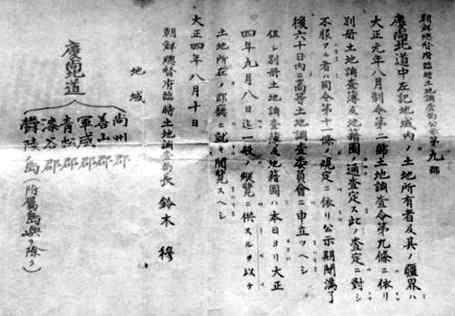 朝鮮總督府臨時土地調査局公示第九號
慶尚北道中左記地域内ノ土地所有者及其ノ疆界ハ
大正元年八月制令第二號土地調査令第九條ニ依リ
別冊土地調査簿及地籍圖ノ通査定ス此ノ査定ニ對シ
不服アル者ハ同令第十一條ノ規定ニ依リ公示期間滿了
後六十日内ニ高等土地調査委員會ニ申立ツヘシ
但シ別冊土地調査簿及地籍圖ハ本日ヨリ大正
四年九月八日迄一般ノ縱覽ニ供スルヲ以テ
土地所在ノ郡廳ニ就キ閲覽スヘシ
大正四年八月十日
朝鮮總督府臨時土地調査局長 鈴木 穆
地域
慶尚北道
尚州郡
善山郡
軍威郡
青松郡
漆谷郡
鬱陵島(附屬島嶼ヲ除ク)